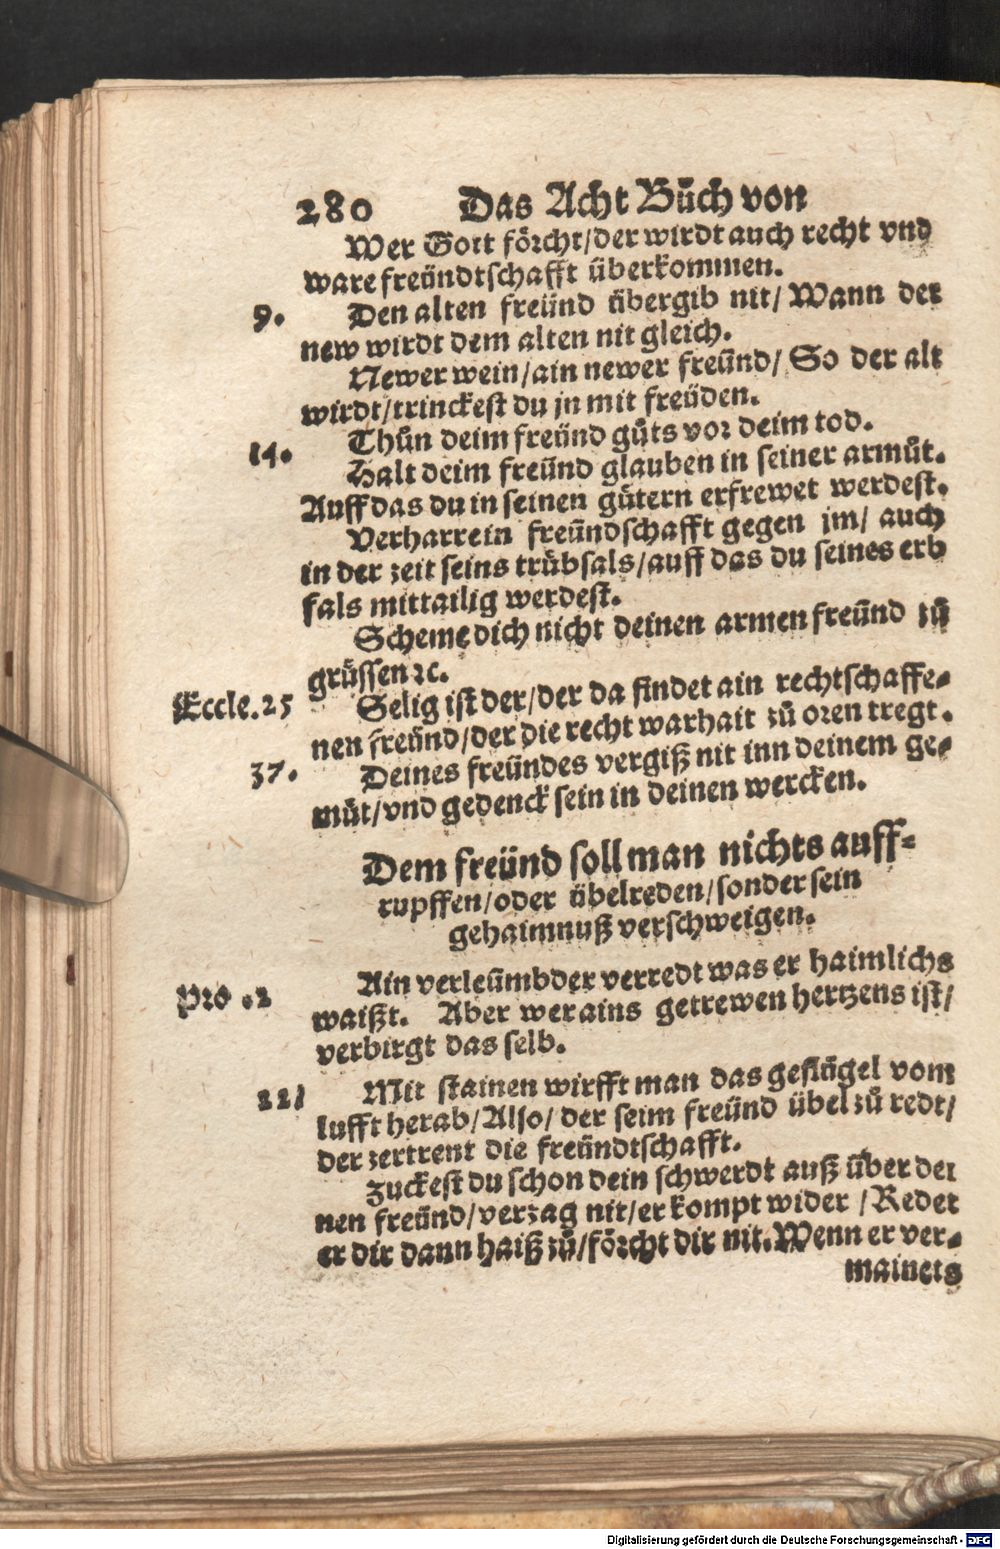 280 Das Acht Bůch von
Wer Gott förcht/der wirdt auch recht vnd
ware freündtschafft überkommen.
9. Den alten freünd übergib nit/ Wann der
new wirdt dem alten nit gleich.
Newer wein/ain newer freünd/ So der alt
wirdt/trinckest du jn mit freüden.
Thůn deim freünd gůts vor deim tod.
14. Halt deim freünd glauben in seiner armůt.
Auff das du in seinen gůtern erfrewet werdest.
Verharre in freündschafft gegen jm/ auch
in der zeit seins trübsals/auff das du seines erb
fals mittailig werdest.
Scheme dich nicht deinen armen freünd zů
grüssen ꝛc.
Eccle.25 Selig ist der/der da findet ain rechtschaffe-
nen freünd/der die recht warhait zů oren tregt.
37. Deines freündes vergiß nit inn deinem ge-
müt/vnd gedenck sein in deinen wercken.
Dem freünd soll man nichts auff-
rupffen/oder übelreden/sonder sein
gehaimnuß verschweigen.
Ain verleümbder verredt was er haimlichs
Pro .2 waißt. Aber wer ains getrewen hertzens ist/
verbirgt das selb.
22/ Mit stainen wirfft man das geflügel vom
lufft herab/Also/ der seim freünd übel zů redt/
der zertrent die freündtschafft.
Zuckest du schon dein schwerdt auß über dei
nen freünd/verzag nit/er kompt wider /Redet
er dir dann haiß zů/förcht dir nit.Wenn er ver-
mainets
Digitalisierung gefördert durch die Deutsche Forschungsgemeinschaft - DFG